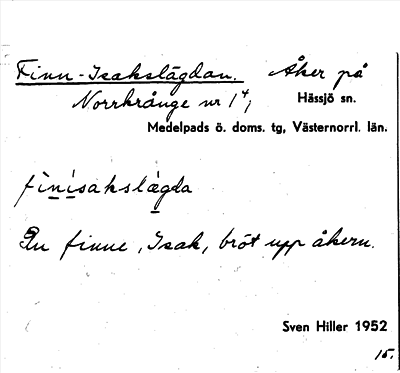 Finn-Isakslägdan. Åker på
Norrkrånge nr 1⁴, Hässjö sn.
Medelpads ö. doms. tg, Västernorrl. län.
finisakslägda
En finne, Isak, bröt upp åkern.
Sven Hiller 1952
15.